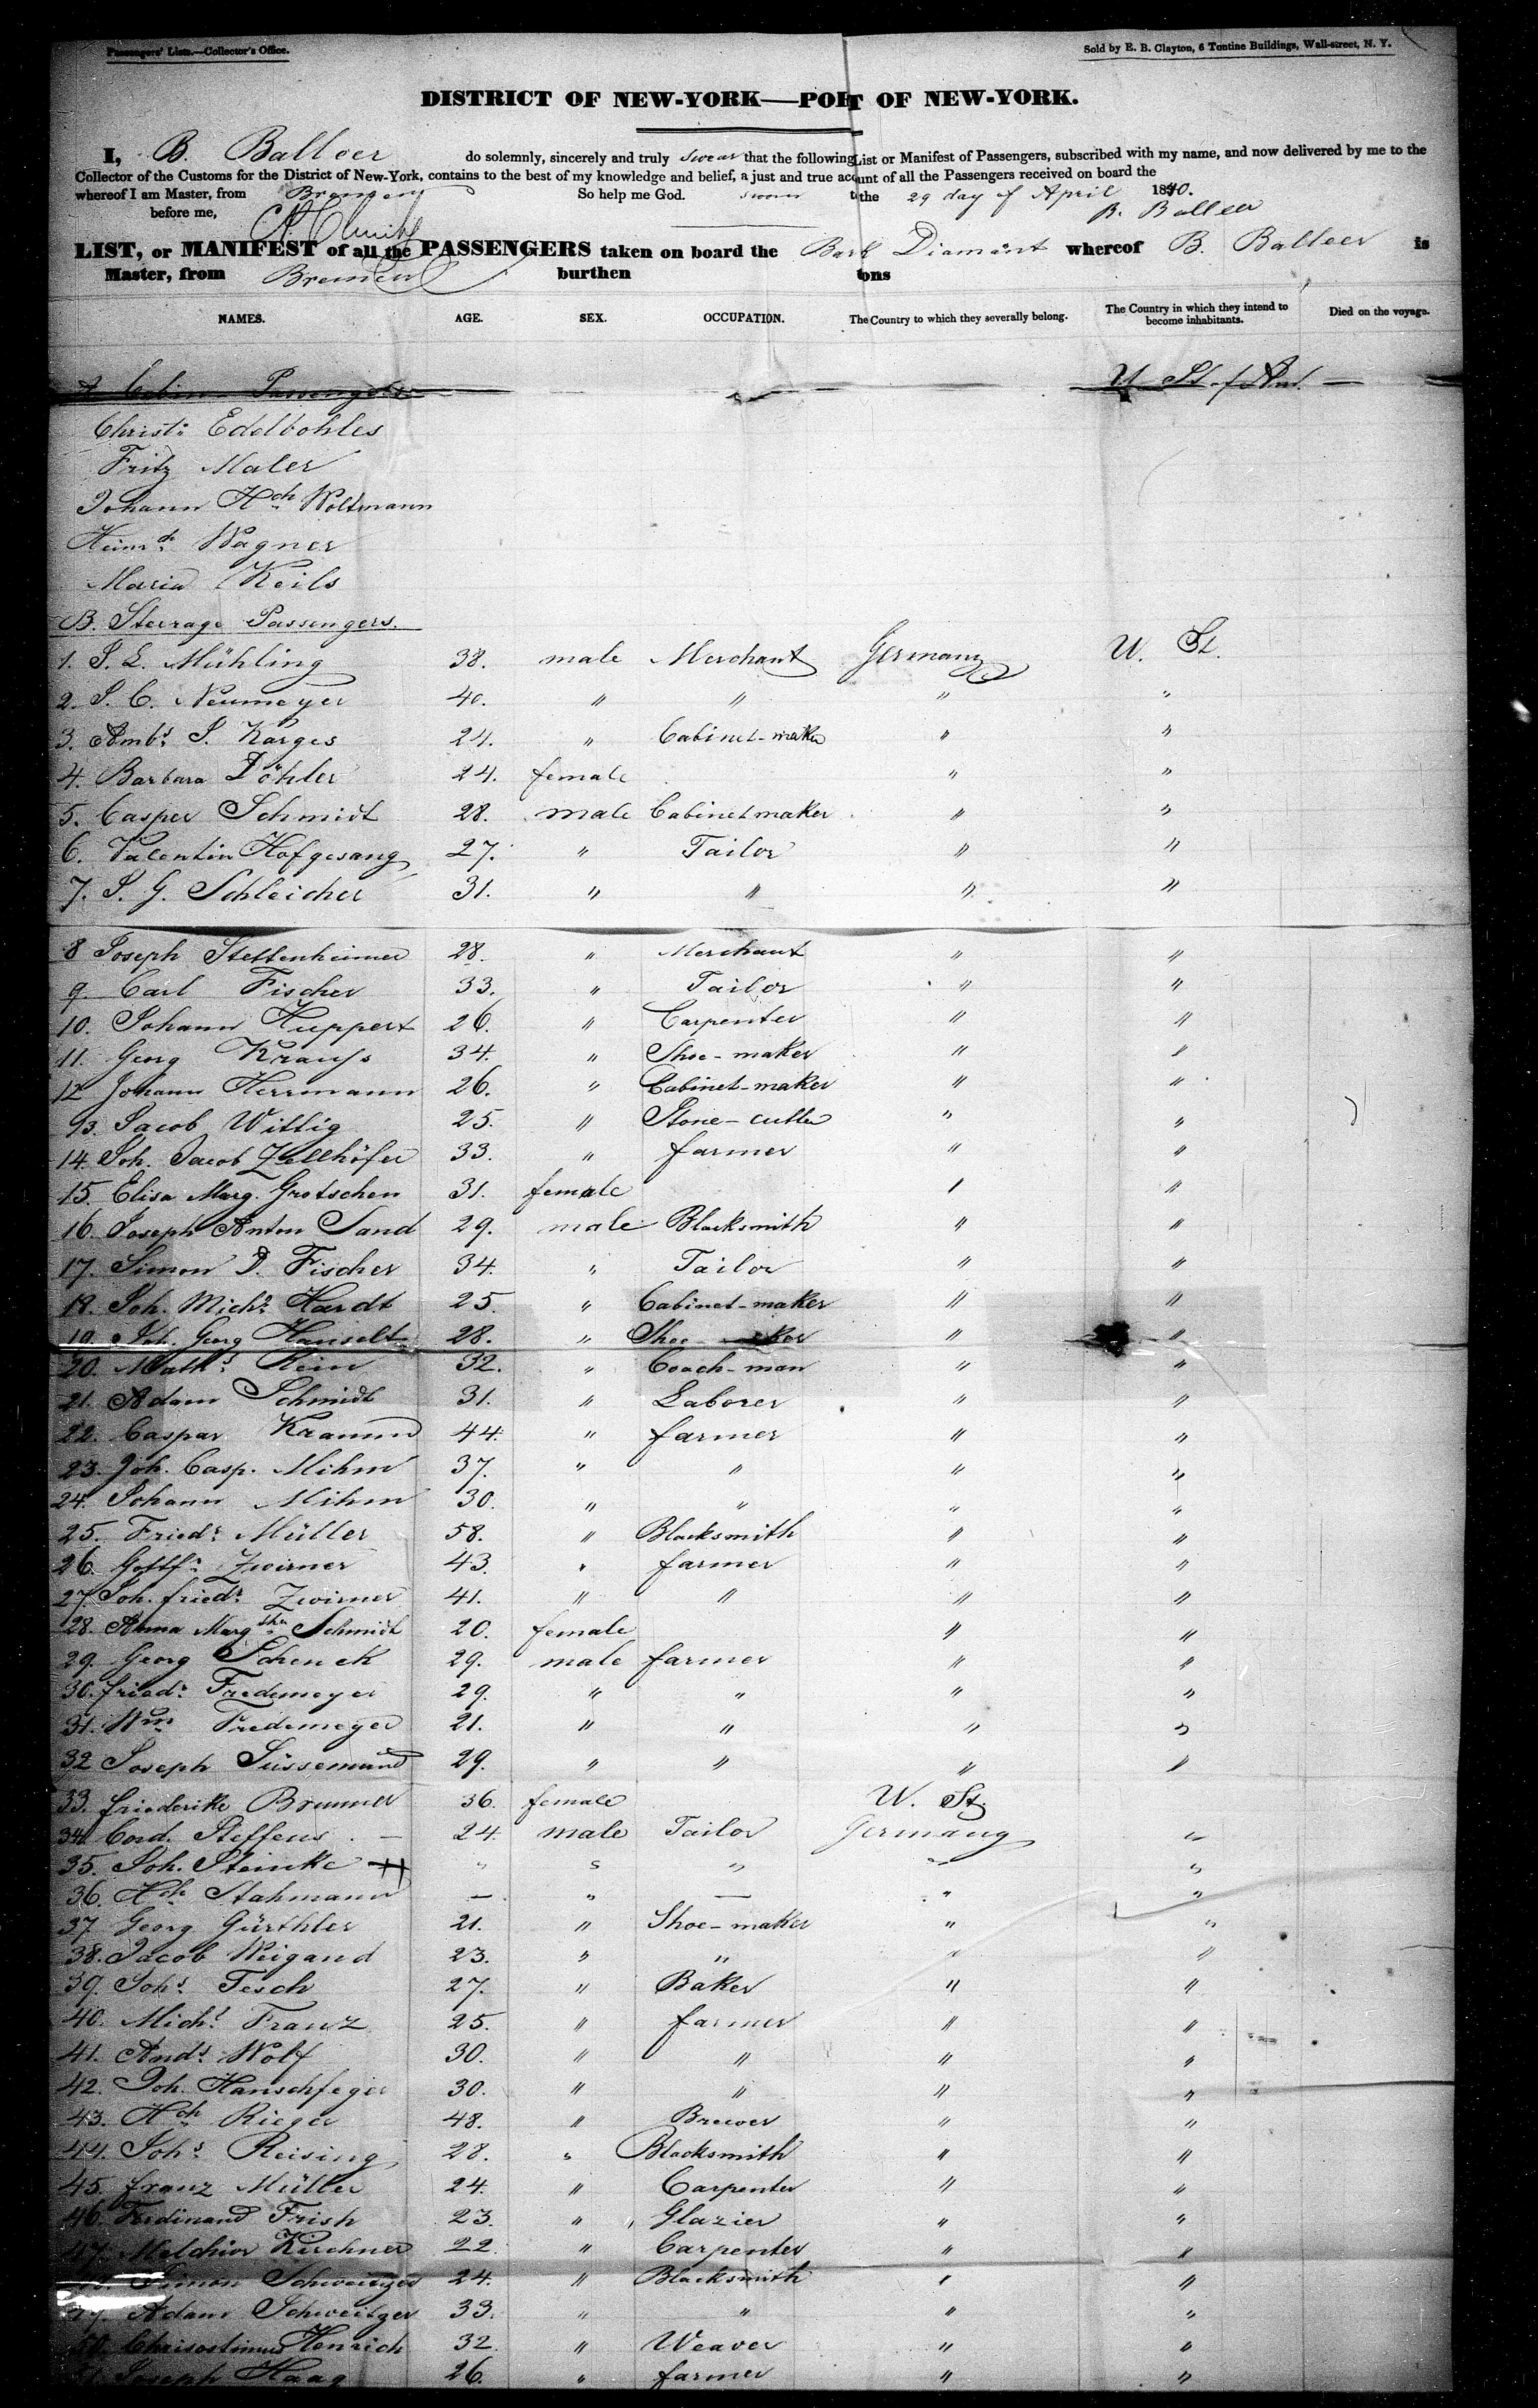 Passengers' Lists.—Collector's Office.
Sold by E. B. Clayton, 6 Tontine Buildings, Wall-street, N. Y.
DISTRICT OF NEW-YORK—PORT OF NEW-YORK.
I, B. Balleer do solemnly, sincerely and truly swear that the following List or Manifest of Passengers, subscribed with my name, and now delivered by me to the
Collector of the Customs for the District of New-York, contains to the best of my knowledge and belief, a just and true account of all the Passengers received on board the
whereof I am Master, from Bremen So help me God. sworn the 29 day of April 1840.
before me, B. Balleer
LIST, or MANIFEST of all the PASSENGERS taken on board the Bark Diamant whereof B. Balleer is
Master, from Bremen burthen tons
NAMES. AGE. SEX. OCCUPATION. The Country to which they severally belong. The Country in which they intend to become inhabitants. Died on the voyage.
A Cabin Passengers U St. of Am. —
Christ: Edelbohles
Fritz Maler
Johann Hch Woltmann
Heinrch Wagner
Maria Keils
B. Steerage Passengers.
1. J. L. Mühling 38. male Merchant Germany U. St.
2. J. C. Neumeyer 40. " " " "
3. Ambs. J. Karges 24. " Cabinet-maker " "
4. Barbara Döhler 24. female " "
5. Casper Schmidt 28. male Cabinetmaker " "
6. Valentin Hofgesang 27. " Tailor " "
7. J. G. Schleicher 31. " " " "
8 Joseph Stettenheimer 28. " Merchant " "
9. Carl Fischer 33. " Tailor " "
10. Johann Huppert 26. " Carpenter " "
11. Georg Krauss 34. " Shoe-maker " "
12 Johann Herrmann 26. " Cabinet-maker " "
13. Jacob Wittig 25. " Stone-cutter " "
14. Joh. Jacob Zellhöfer 33. " farmer " "
15. Elisa Marg. Grotschen 31. female " "
16. Joseph Anton Sand 29. male Blacksmith " "
17. Simon D. Fischer 34. " Tailor " "
18. Joh. Michl. Hardt 25. " Cabinet-maker " "
19. Joh. Georg Hanselt 28. " Shoe-maker " "
20. Maths. Hein 32. " Coach-man " "
21. Adam Schmidt 31. " Laborer " "
22. Caspar Kramm 44. " farmer " "
23. Joh. Casp. Mihm 37. " " " "
24. Johann Mihm 30. " " " "
25. Friedr. Müller 58. " Blacksmith " "
26. Gottfr. Zwirner 43. " farmer " "
27. Joh. friedr. Zwirner 41. " " " "
28. Anna Margtha. Schmidt 20. female " "
29. Georg Schenck 29. male farmer " "
30. friedr. Fredemeyer 29. " " " "
31. Wm. Fredemeyer 21. " " " "
32 Joseph Süssemund 29. " " " "
33. friederike Brunner 36. female U. St.
34. Cord. Steffens. — 24. male Tailor Germany "
35. Joh. Steincke " " " " "
36. Hch. Stahmann — " — " "
37. Georg Gürthler 21. " Shoe-maker " "
38. Jacob Weigand 23. " " " "
39. Johs. Tesch 27. " Baker " "
40. Michl. Franz 25. " farmer " "
41. Ands. Wolf 30. " " " "
42. Joh. Hanschfeger 30. " " " "
43. Hch Rieger 48. " Brewer " "
44. Johs. Reising 28. " Blacksmith " "
45. franz Müller 24. " Carpenter " "
46. Ferdinand Frish 23. " Glazier " "
47. Melchior Kirchner 22. " Carpenter " "
Simon Schweitzer 24. " Blacksmith " "
Adam Schweitzer 33. " " " "
50. Chrisostimus Henrich 32. " Weaver " "
51. Joseph Haag 26. " farmer " "